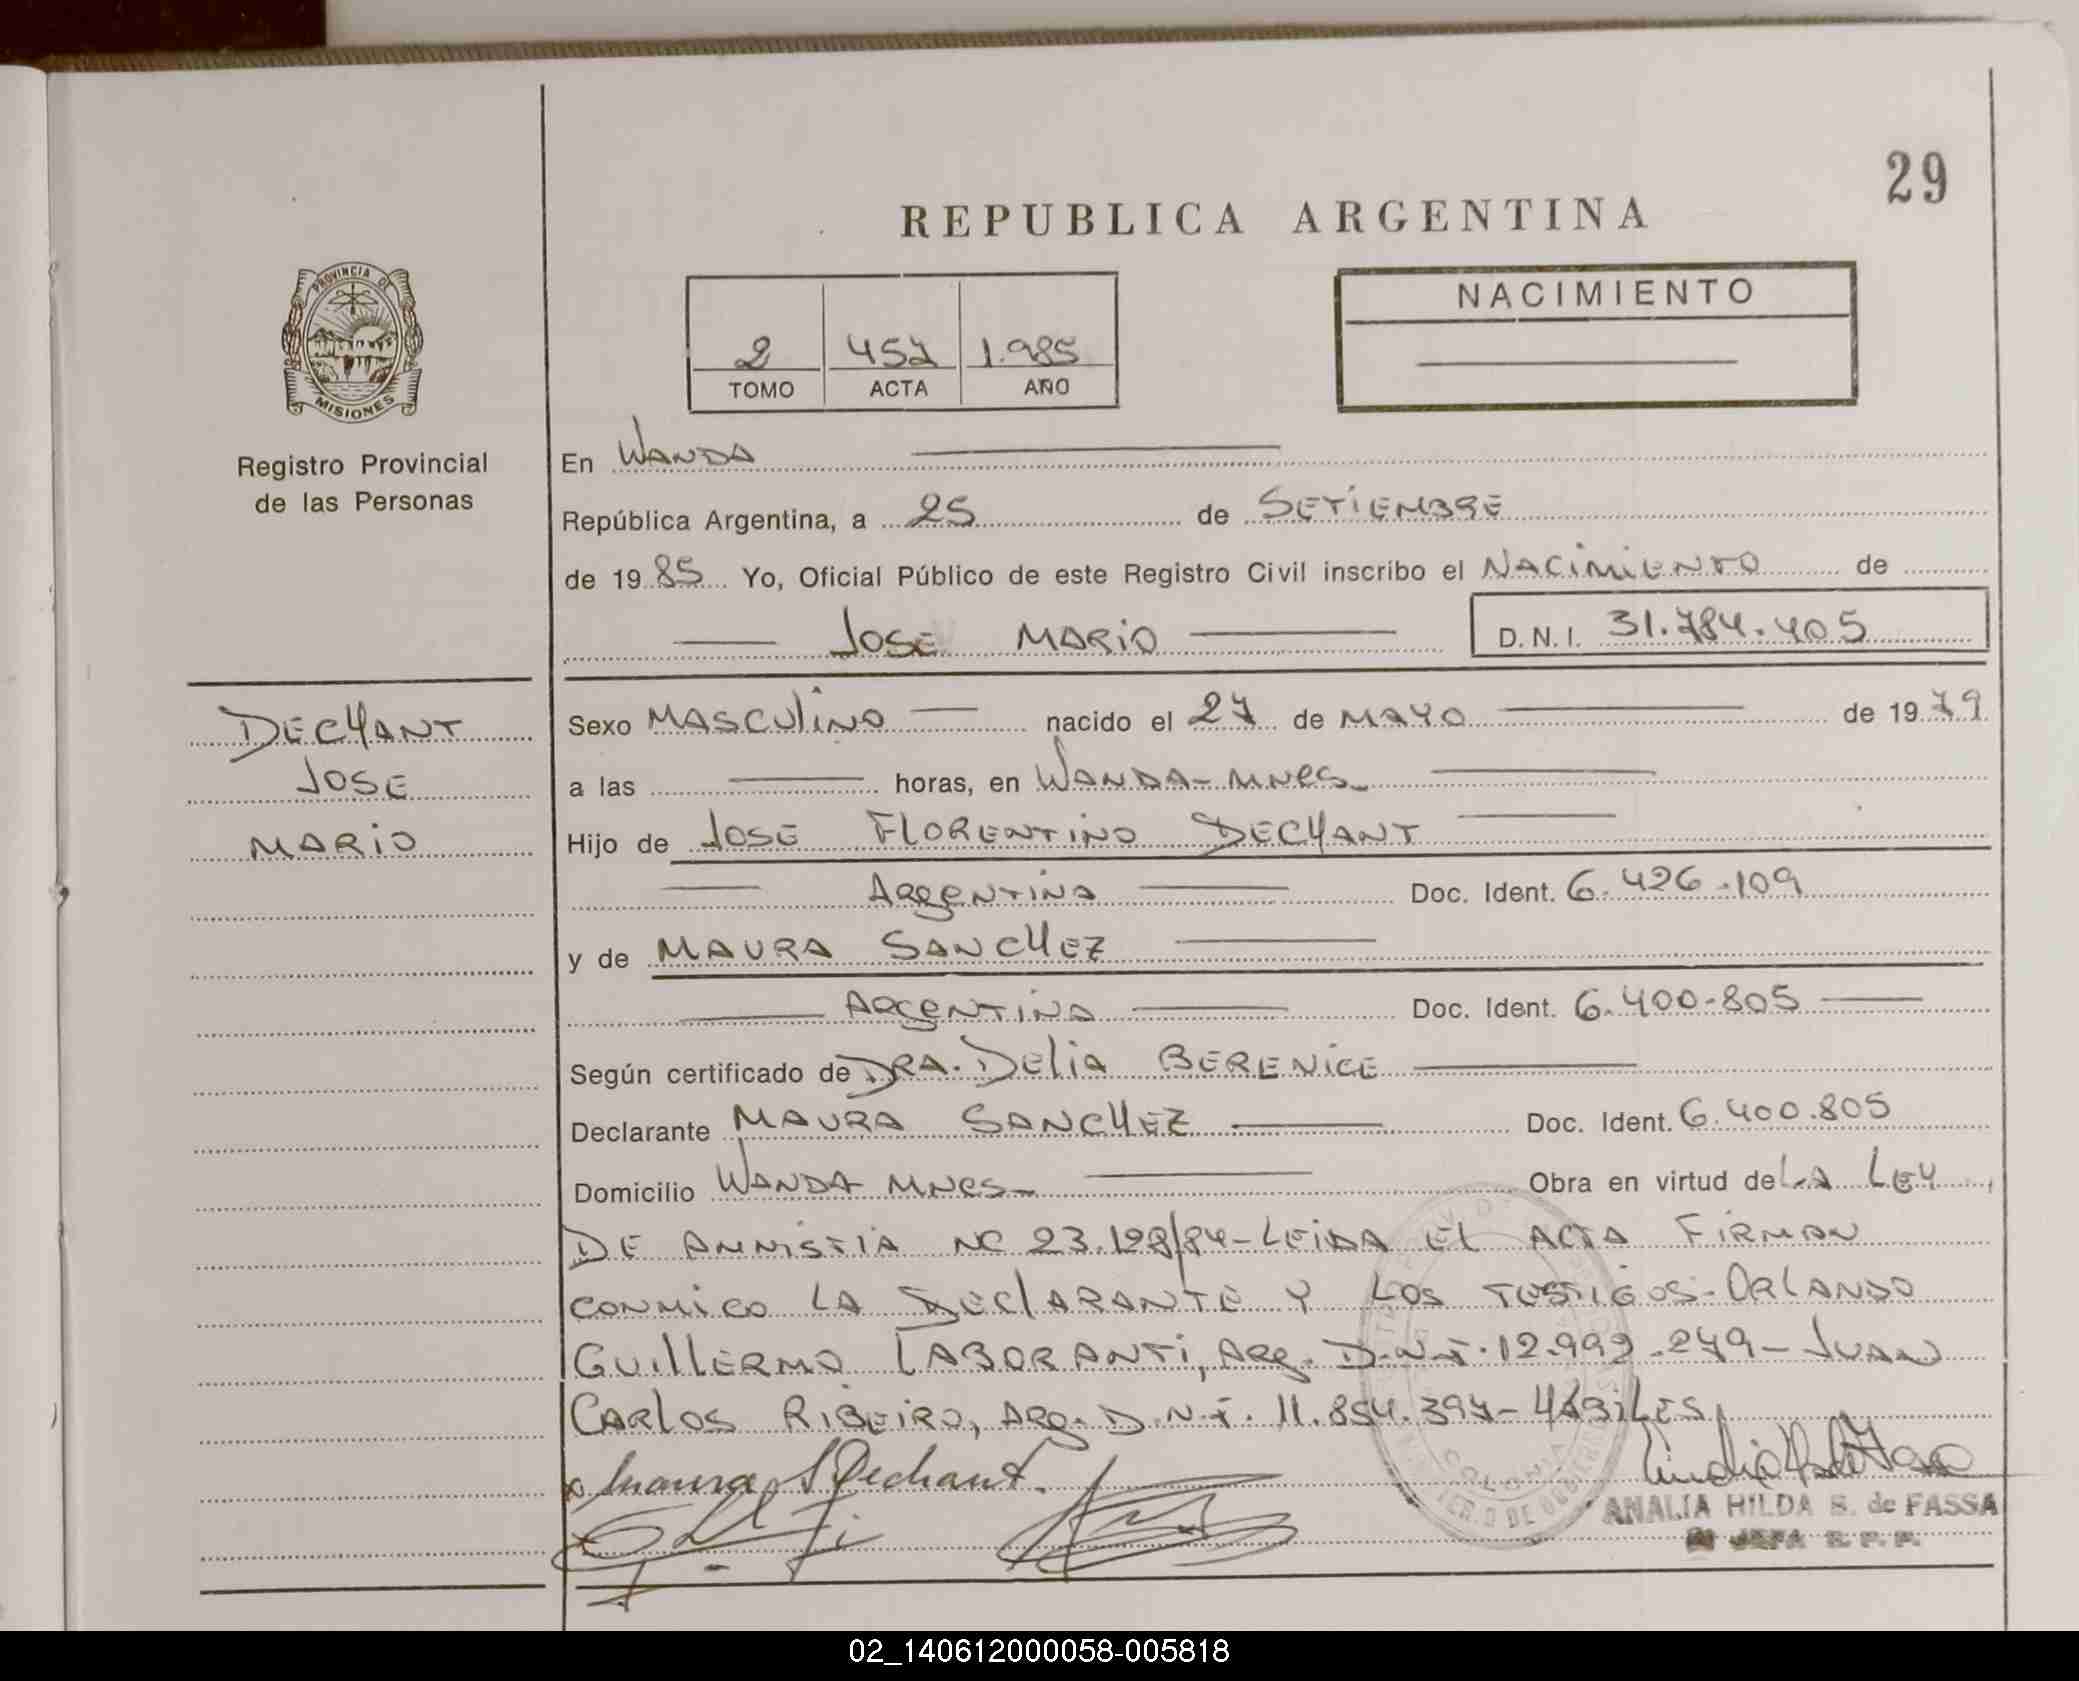 29
REPUBLICA ARGENTINA
PROVINCIA DE
MISIONES
Registro Provincial
de las Personas
2 457 1.985
TOMO ACTA AÑO
NACIMIENTO
En WANDA
República Argentina, a 25 de SETIEMBRE
de 1985 Yo, Oficial Público de este Registro Civil inscribo el NACIMIENTO de
JOSE MARIO D.N.I. 31.784.405
DECHANT
JOSE
MARIO
Sexo MASCULINO nacido el 27 de MAYO de 1979
a las horas, en WANDA-MNES-
Hijo de JOSE FLORENTINO DECHANT
ARGENTINA Doc. Ident. 6.426.109
y de MAURA SANCHEZ
ARGENTINA Doc. Ident. 6.400.805
Según certificado de DRA. DELIA BERENICE
Declarante MAURA SANCHEZ Doc. Ident. 6.400.805
Domicilio WANDA MNES- Obra en virtud de LA LEY
DE AMNISTIA Nº 23.128/84-LEIDA EL ACTA FIRMAN
CONMIGO LA DECLARANTE Y LOS TESTIGOS-ORLANDO
GUILLERMO LABORANTI, ARG. D.N.I. 12.992.279-JUAN
CARLOS RIBEIRO, ARG. D.N.I. 11.854.397-HABILES
Maura S Dechant.
ANALIA HILDA S. de FASSA
JEFA R. P. P.
02_140612000058-005818